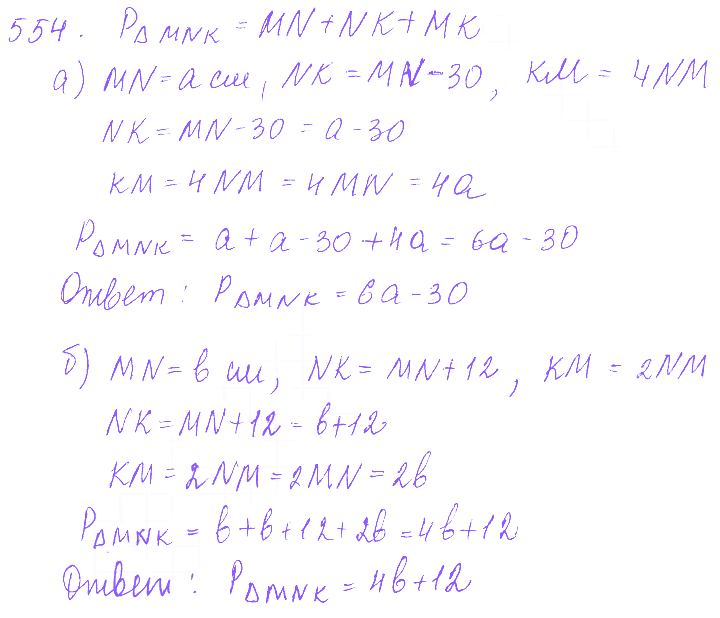 554. P△MNK = MN + NK + MK
а) MN = a см, NK = MN - 30, KM = 4NM
NK = MN - 30 = a - 30
KM = 4NM = 4MN = 4a
P△MNK = a + a - 30 + 4a = 6a - 30
Ответ: P△MNK = 6a - 30
б) MN = в см, NK = MN + 12, KM = 2NM
NK = MN + 12 = в + 12
KM = 2NM = 2MN = 2в
P△MNK = в + в + 12 + 2в = 4в + 12
Ответ: P△MNK = 4в + 12